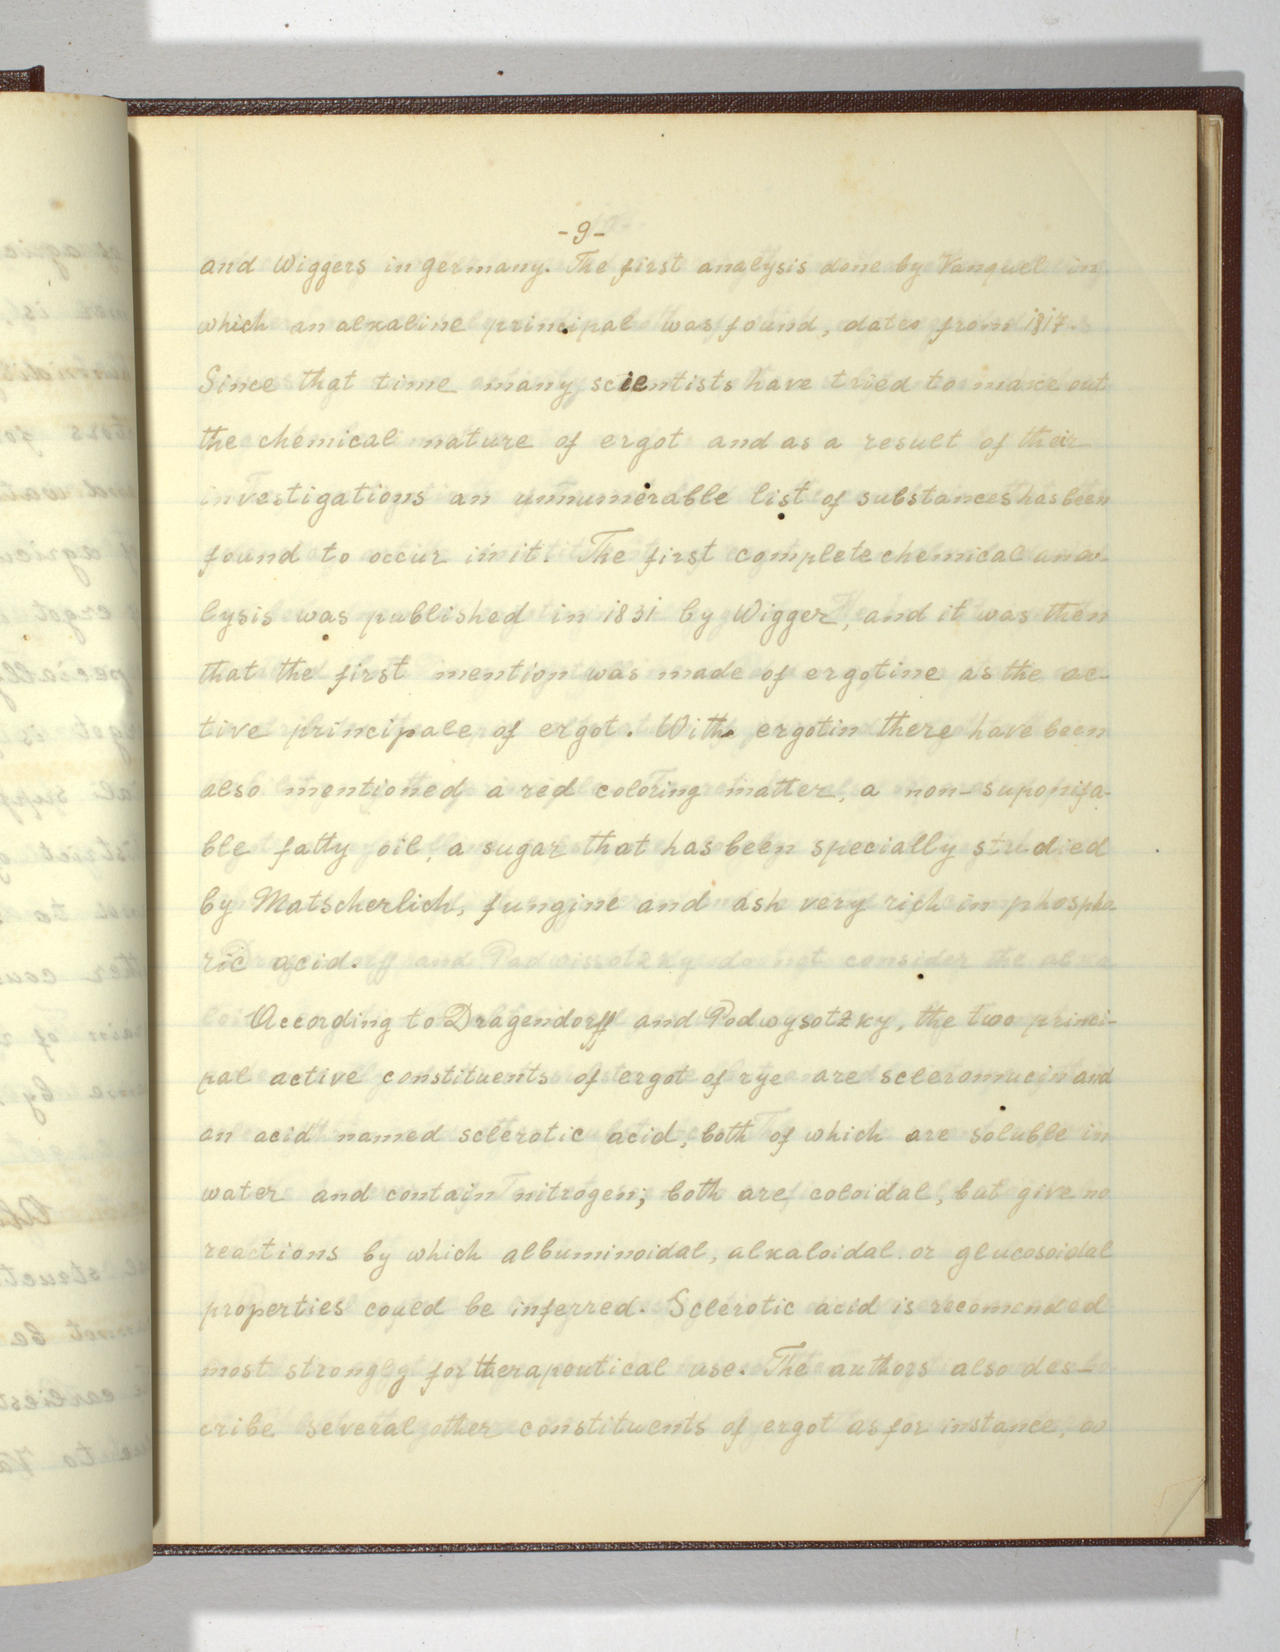 -9-
and Wiggers in Germany. The first analysis done by Vanquel in
which an alkaline principal was found, dates from 1817.
Since that time many scientists have tried to make out
the chemical nature of ergot and as a result of their
investigations an unnumerable list of substances has been
found to occur in it. The first complete chemical ana-
lysis was published in 1831 by Wigger, and it was then
that the first mention was made of ergotine as the ac-
tive principale of ergot. With ergotin there have been
also mentioned a red coloring matter, a non-suponifa-
ble fatty oil, a sugar that has been specially studied
by Matscherlich, fungine and ash very rich in phospho
ric acid.
According to Dragendorff and Podwysotzky, the two princi-
pal active constituents of ergot of rye are scleromucin and
an acid named sclerotic acid, both of which are soluble in
water and contain nitrogen; both are coloidal, but give no
reactions by which albuminoidal, alkaloidal or glucosoidal
properties could be inferred. Sclerotic acid is recomended
most strongly for therapeutical use. The authors also des-
cribe several other constituents of ergot as for instance, a